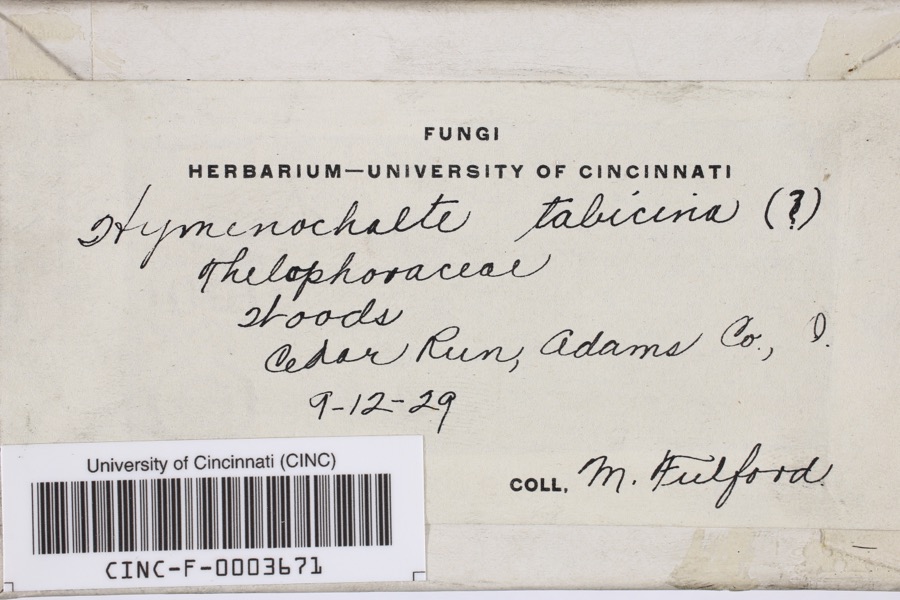 FUNGI
HERBARIUM—UNIVERSITY OF CINCINNATI
Hymenochaete tabicina (?)
Thelephoraceae
Woods
Cedar Run, Adams Co., O.
9-12-29
COLL. M. Fulford
University of Cincinnati (CINC)
CINC-F-0003671